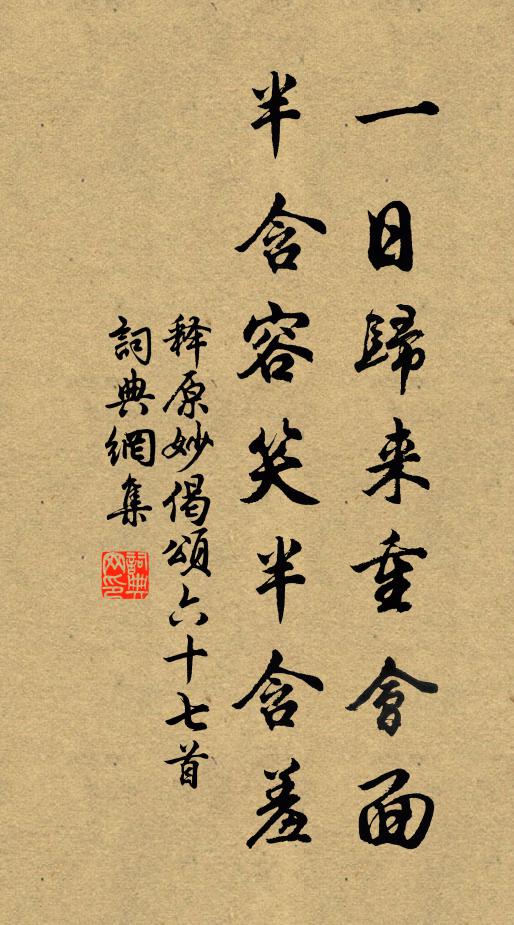 一日歸来重會面
半含容笑半含羞
释原妙偈頌六十七首
詞典網集
詞典網印